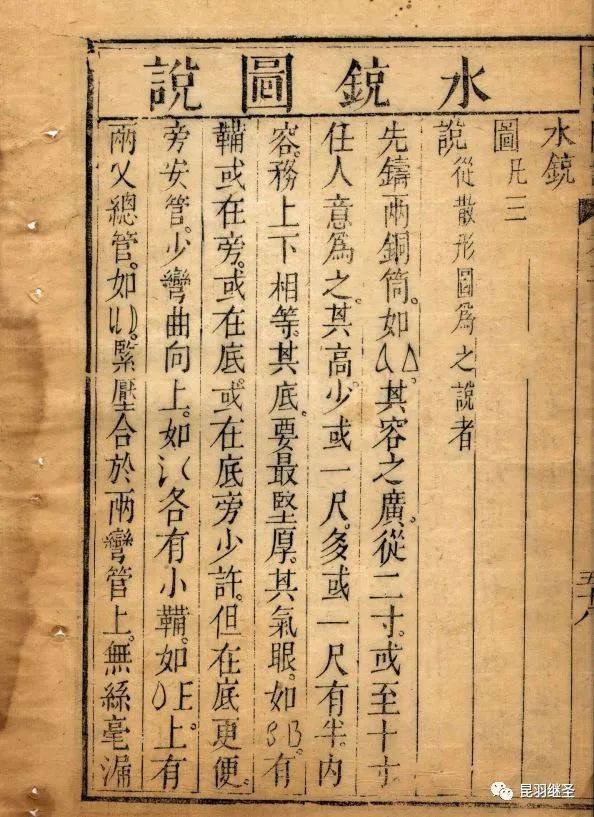 水銃圖說
水銃
圖凡三
說從散形圖為之說者
先鑄兩銅筒。如其容之廣。從二寸。或至十寸
任人意為之。其高少或一尺。多或一尺有半。内
容。務上下相等。其底。要最堅厚。其氣眼。如B。有
鞴或在旁。或在底。或在底旁少許。但在底更便。
旁安管。少彎曲向上。如各有小鞴。如E。上有
兩乂總管。如緊壓合於兩彎管上。無絲毫漏
昆羽继圣